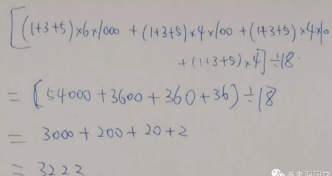 [(1+3+5)×6×1000 + (1+3+5)×4×100 + (1+3+5)×4×10
+ (1+3+5)×4]÷18
= (54000+3600+360+36)÷18
= 3000+200+20+2
= 3222